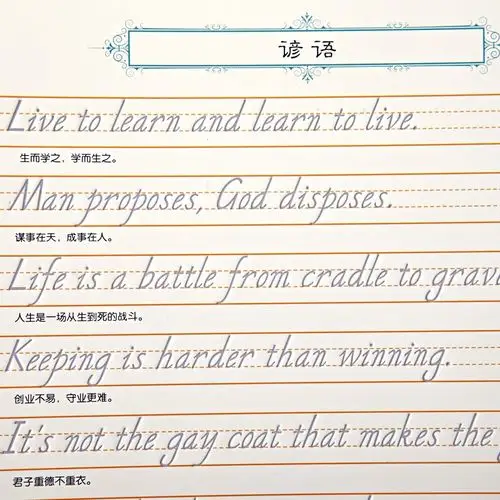 谚语
Live to learn and learn to live.
生而学之，学而生之。
Man proposes, God disposes.
谋事在天，成事在人。
Life is a battle from cradle to
人生是一场从生到死的战斗。
Keeping is harder than winning.
创业不易，守业更难。
It's not the gay coat that makes the
君子重德不重衣。